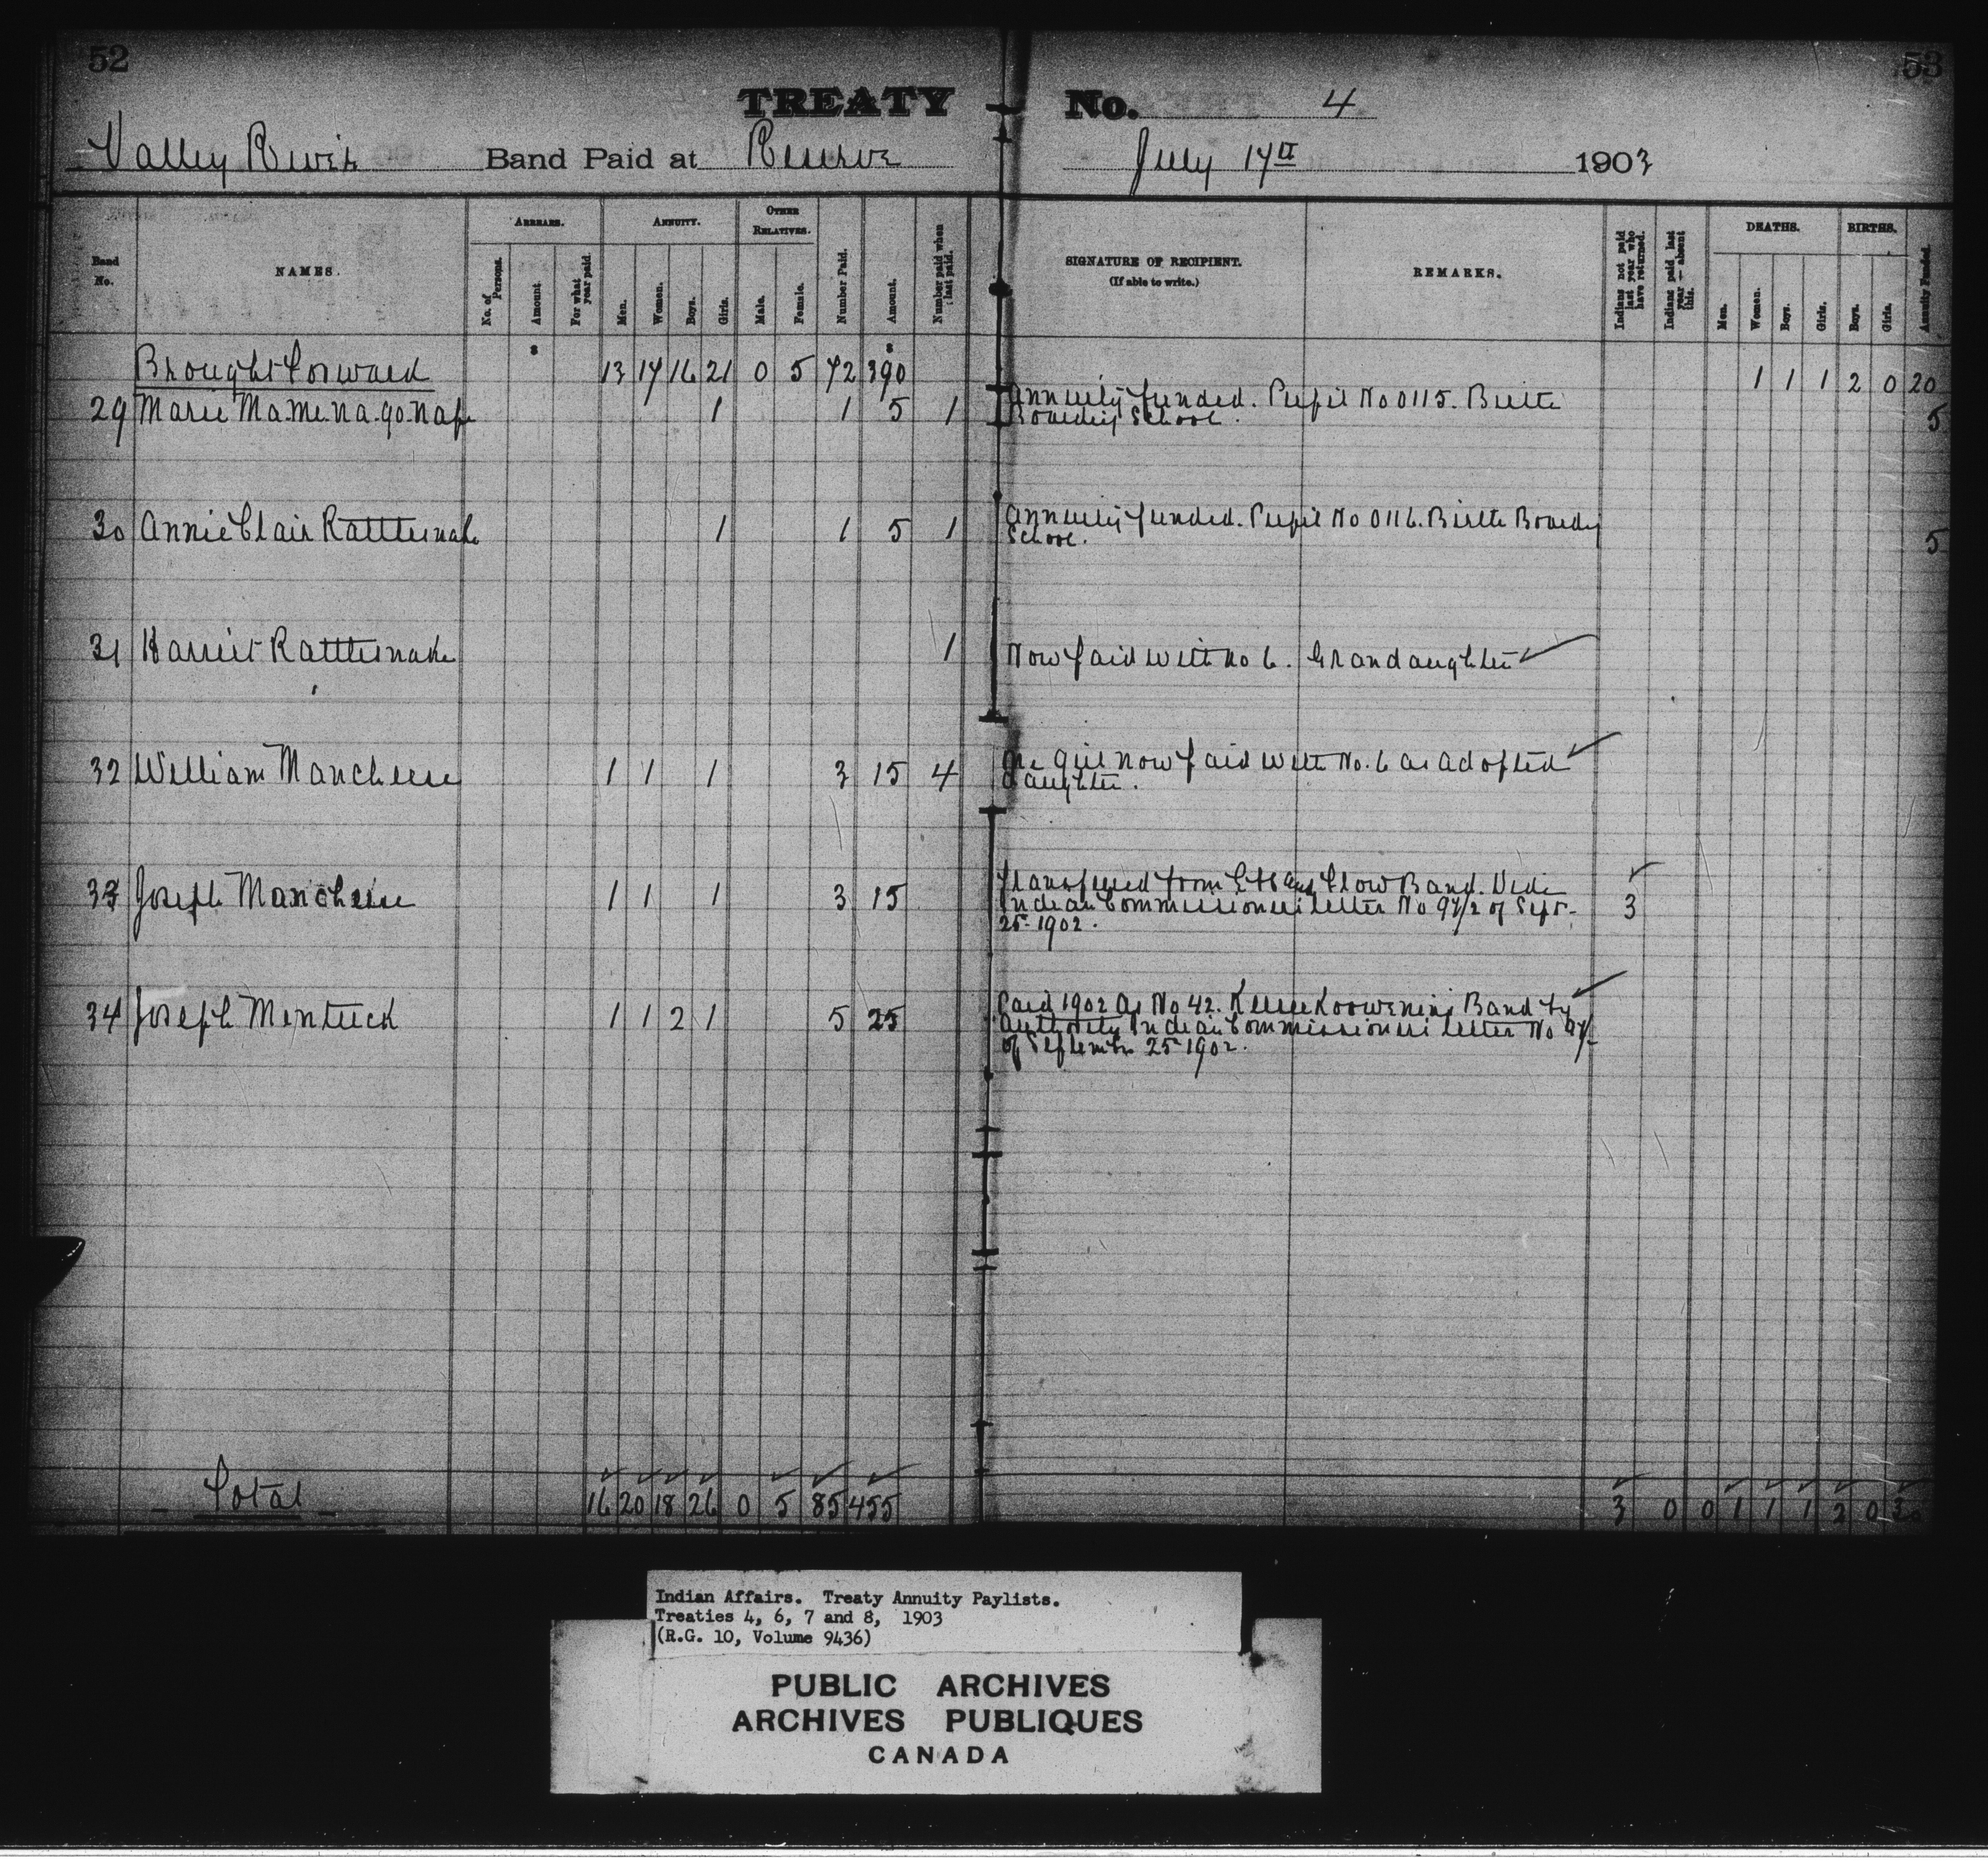 52
53
TREATY No. 4
Valley River Band Paid at Reserve July 17th 1903
Band No.
NAMES.
ARREARS.
No. of Persons.
Amount.
For what year paid.
ANNUITY.
Men.
Women.
Boys.
Girls.
OTHER RELATIVES.
Male.
Female.
Number Paid.
Amount.
Number paid when last paid.
SIGNATURE OF RECIPIENT.
(If able to write.)
REMARKS.
Indians not paid last year who have returned.
Indians paid last year — absent this.
DEATHS.
Men.
Women.
Boys.
Girls.
BIRTHS.
Boys.
Girls.
Annuity Funded.
$ $
Brought Forward 13 17 16 21 0 5 72 390 1 1 1 2 0 20
29 Marie Ma.me.na.go.nape 1 1 5 1 Annuity funded. Pupil No 0115. Birtle
Boarding School. 5
30 Annie Clair Rattlesnake 1 1 5 1 Annuity funded. Pupil No 0116. Birtle Boarding
School. 5
31 Harriet Rattlesnake 1 Now paid with No 6. Grandaughter
32 William Mancheese 1 1 1 3 15 4 One girl now paid with No. 6 as adopted
daughter.
33 Joseph Mancheese 1 1 1 3 15 Transferred from Band. Vide
Indian Commissioners letter No 97/2 of Sept. 3
25-1902.
34 Joseph Mentuck 1 1 2 1 5 25 Paid 1902 as No 42. Keeseekoowenins Band by
authority Indian Commissioners letter No 97/
of September 25-1902.
Total 16 20 18 26 0 5 85 455 3 0 0 1 1 1 2 0 30
Indian Affairs. Treaty Annuity Paylists.
Treaties 4, 6, 7 and 8, 1903
(R.G. 10, Volume 9436)
PUBLIC ARCHIVES
ARCHIVES PUBLIQUES
CANADA